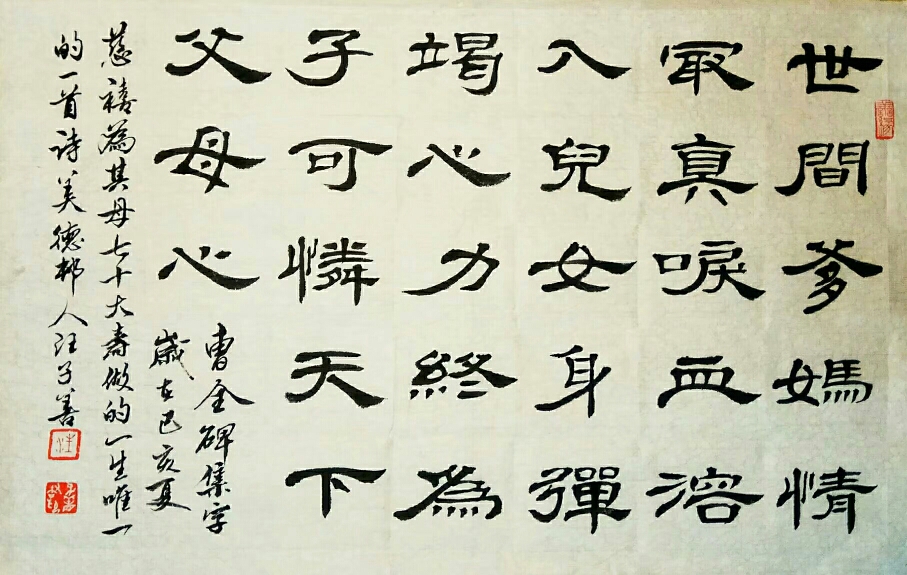 世間爹媽情
冣真唳血溶
入兒女身彈
竭心力終為
子可憐天下
父母心
曹全碑集字
歲在己亥夏
慈禧為其母七十大壽做的一生唯一
的一首诗美德邨人汪子善
汪